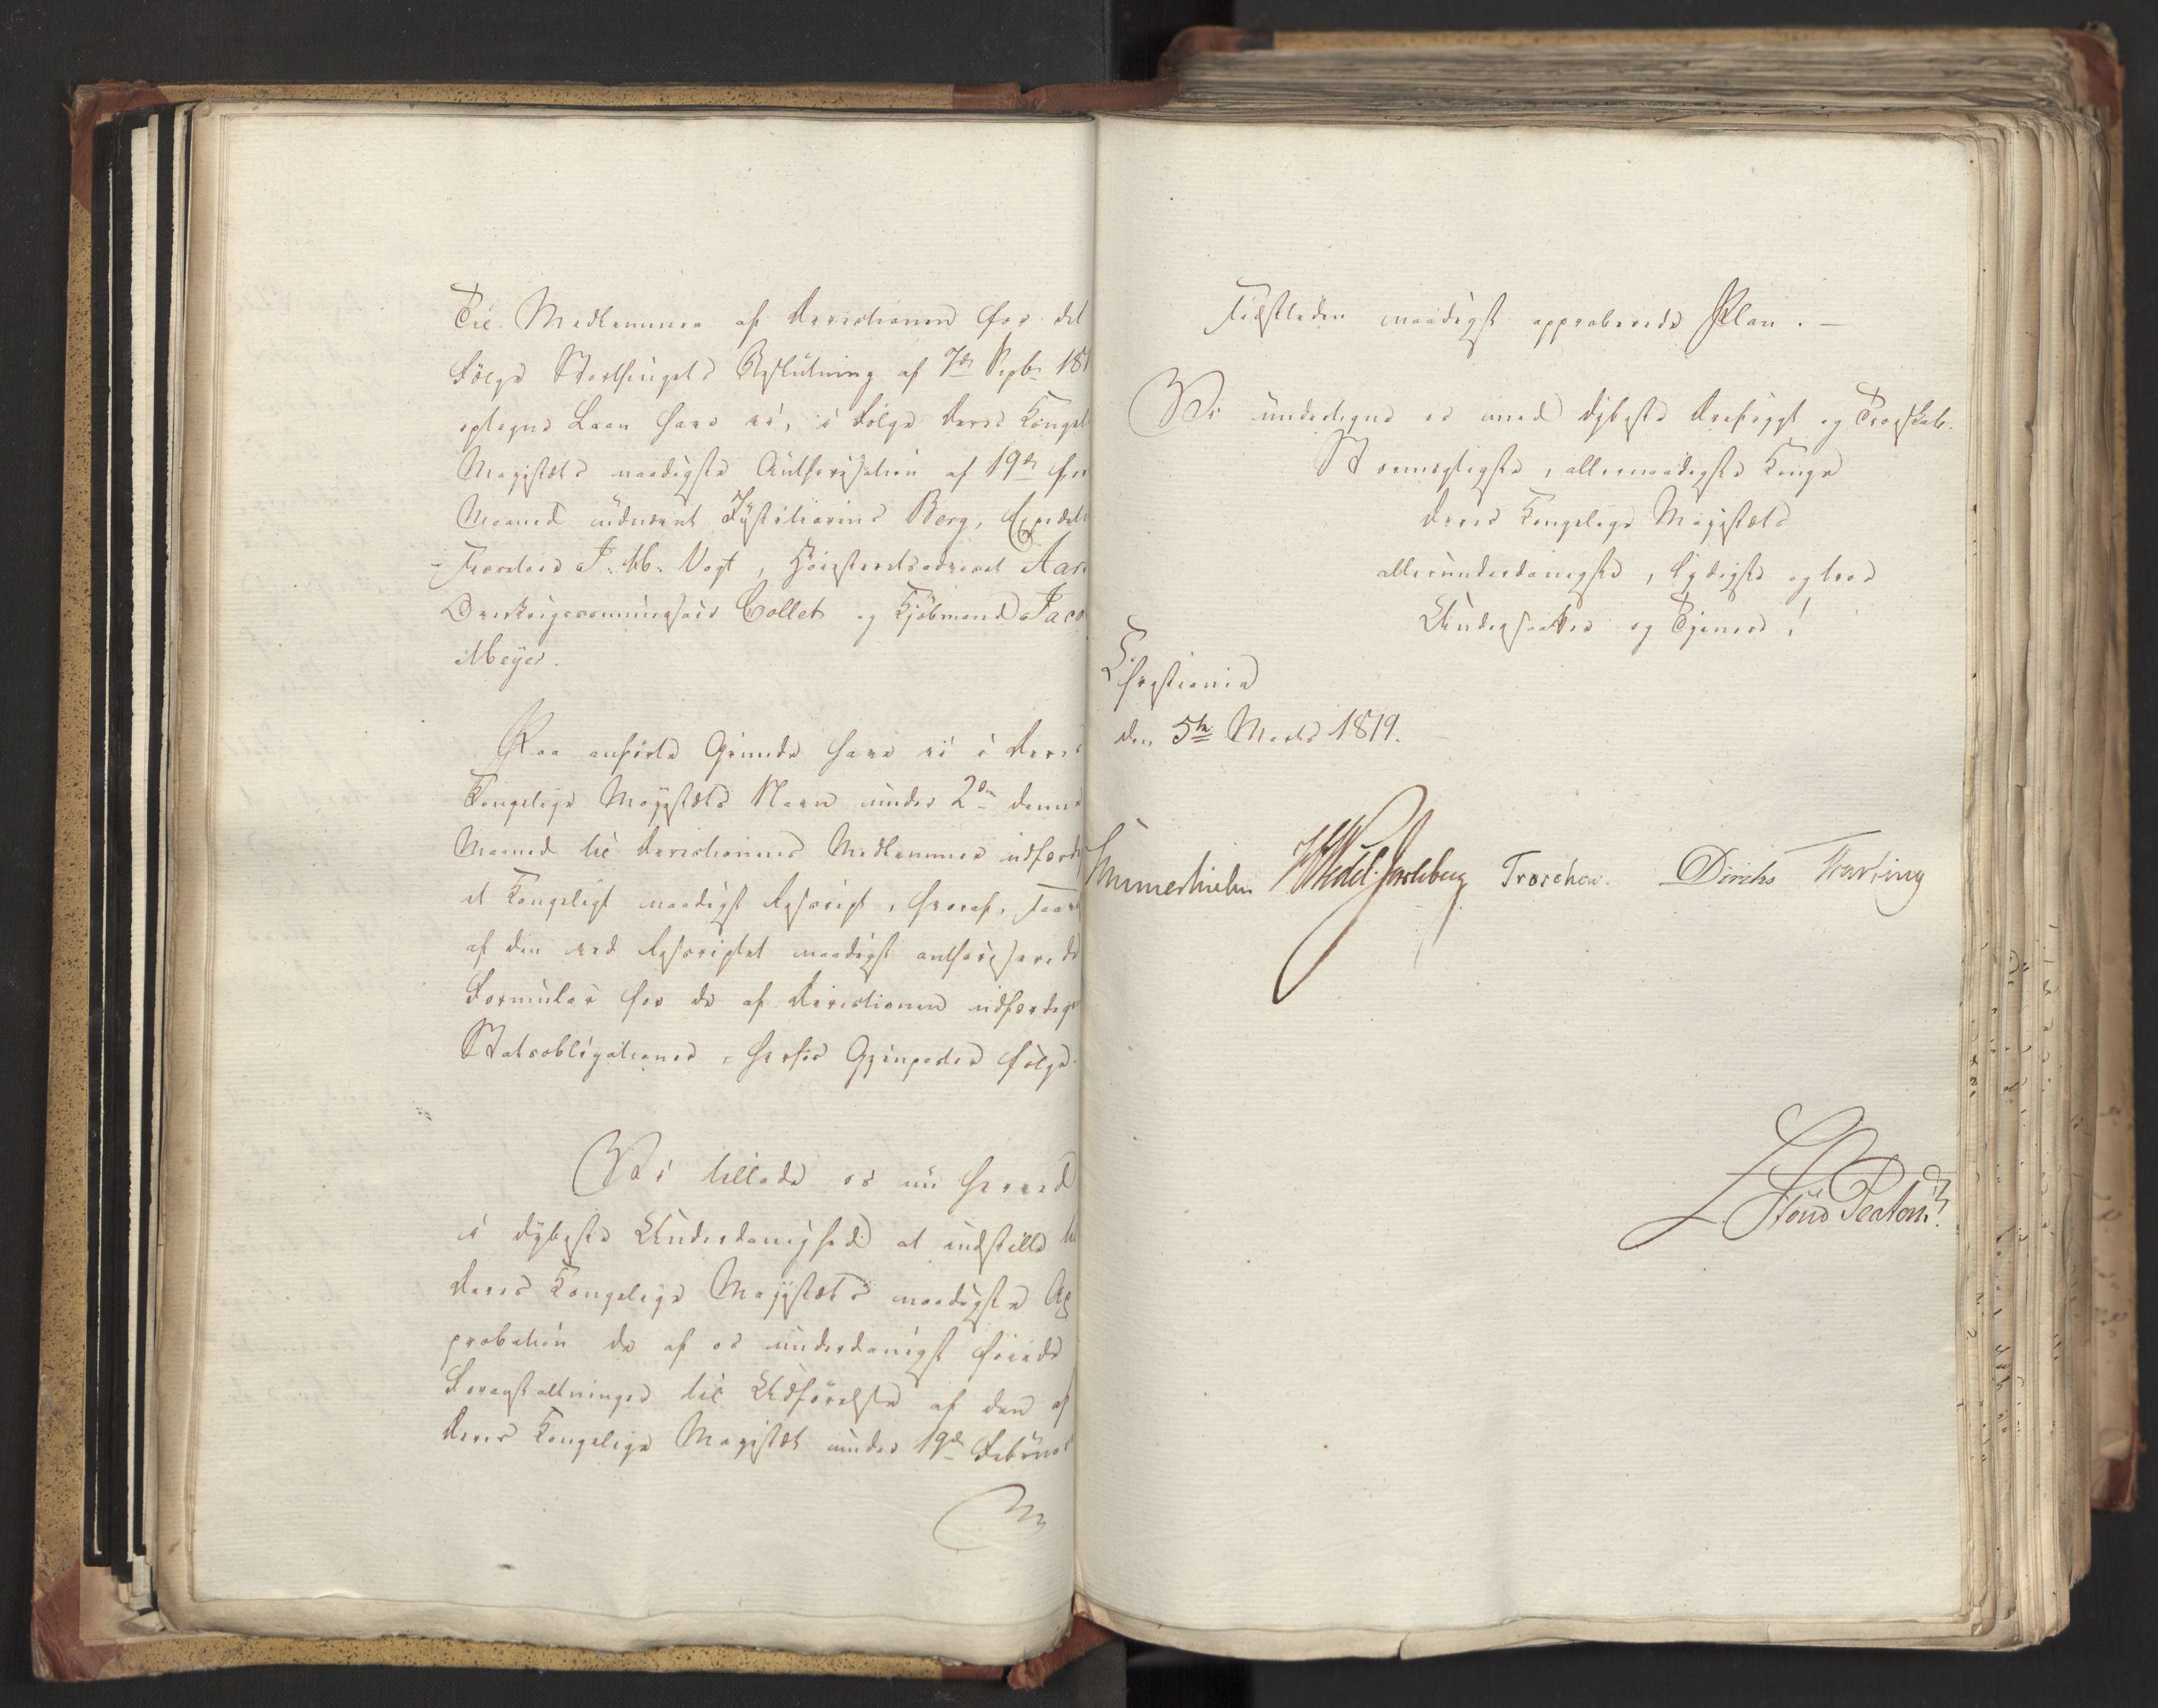 Til Medlemmer af Directionen for det
Følge Storthingets Beslutning af 7de Septbr 181
optagne Laan have vi, i Følge Deres Kongel
Majestæts naadigste Authorisation af 19de
Maaned udnævnt Justitiarius Berg, Expedit
J. H. Vogt, Høiesteretsadvocat
Overkrigscommissair Collet og Kjøbmand Jaco
Meyer.
Paa anførte Grunde have vi i Deres
Kongelige Majestæts Navn under 2den denne
Maaned til Directionens Medlemmer udfærd
et Kongeligt naadigst Rescript, hvoraf, saavel
af den ved Rescriptet naadigst authoriserede
Formular for de af Directionen udfærdige
Statsobligationer, herhos Gjenparter følge.
Vi tillade os nu herved
i dybeste Underdanighed at indstille til
Deres Kongelige Majestæts naadigste Ap
probation de af os underdanigst føiede
Foranstaltninger til Udførelse af den af
Deres Kongelige Majestæt under 19de Februar
sidstleden naadigst approberede Plan. —
Vi undertegne os med dybeste Ærefrygt og Troeskab.
Stormægtigste, allernaadigste Konge
Deres Kongelige Majestæts
allerunderdanigste, lydigste og troe
Undersaatter og Tjenere!
Christiania
den 5te Marts 1819.
Sommerhielm HWedel-Jarlsberg Treschow. Diriks Fasting